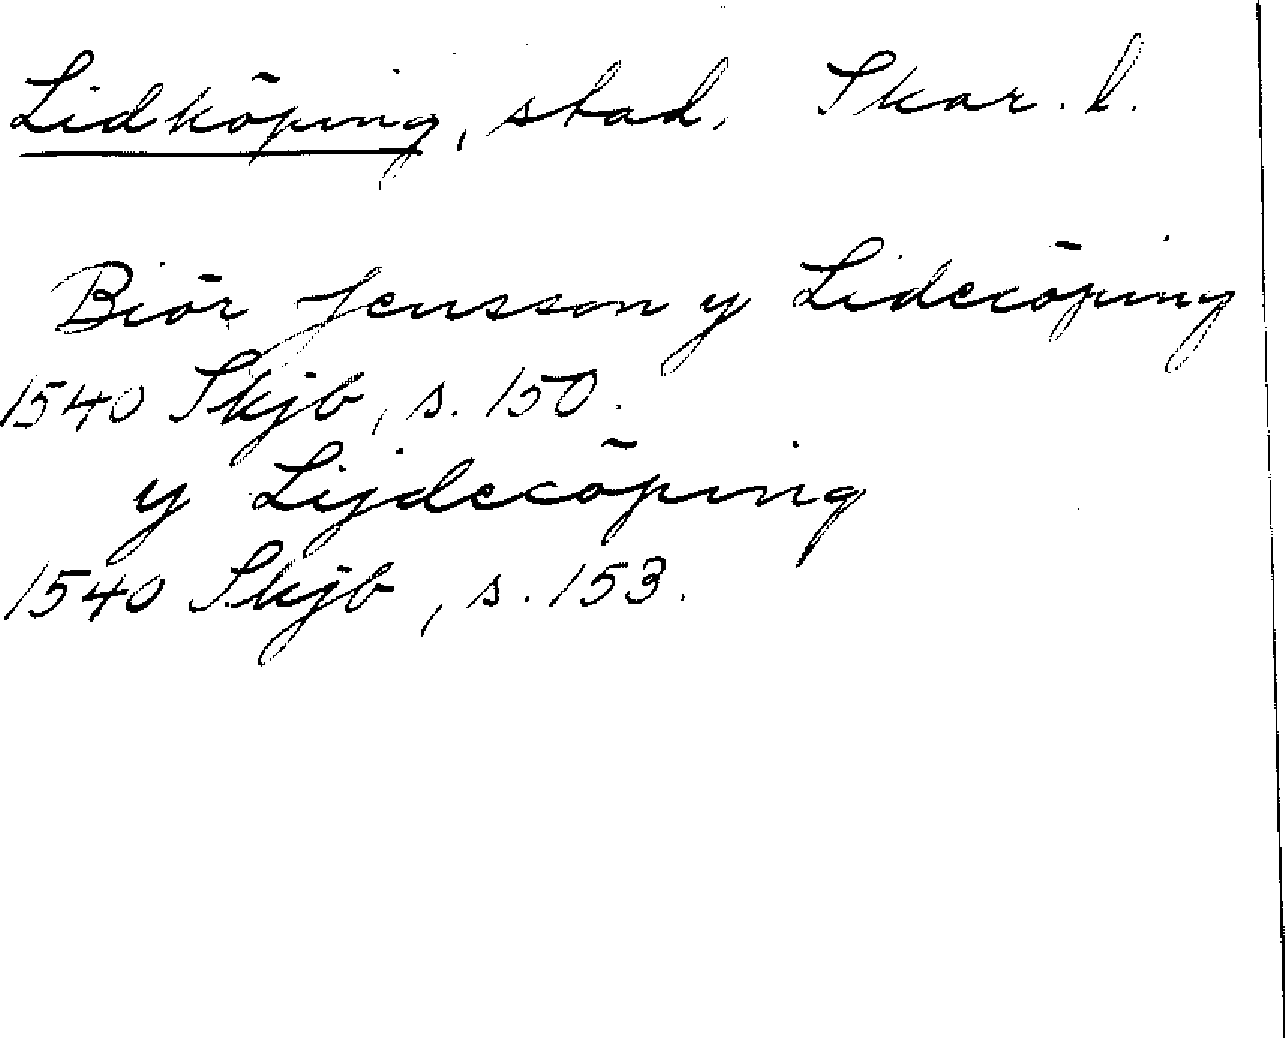 Lidköping, stad, Skar. l.
Biör Jensson y Lidecöping
1540 Skjb, s. 150.
y Lijdecöping
1540 Skjb, s. 153.